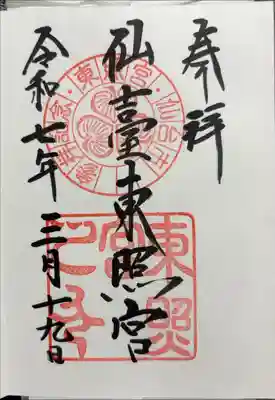 奉拝
仙臺東照宮
令和七年三月十九日
東照